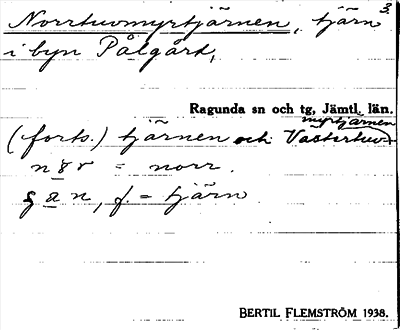 3.
Norrtuvmyrtjärnen, tjärn
i byn Pålgård,
Ragunda sn och tg, Jämtl. län.
myrtjärnen
(forts.) tjärnen och Västertuv-
nör = norr.
f. = tjärn
BERTIL FLEMSTRÖM 1938.